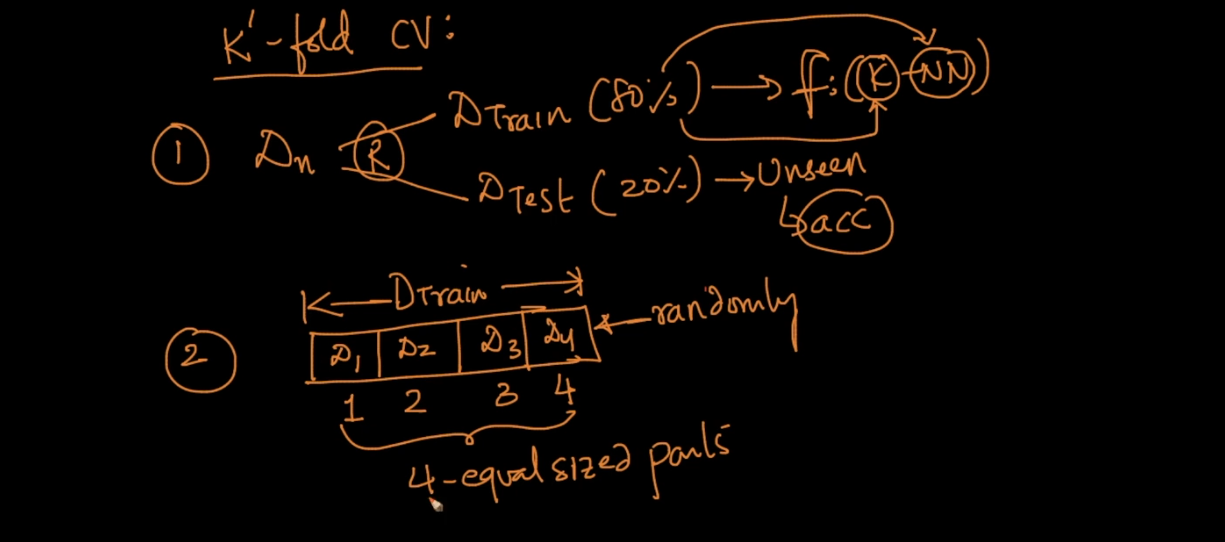 K'-fold CV:
DTrain (80%) → f: (K-NN)
1 Dn R
DTest (20%) → Unseen
↳ acc
DTrain
2 D1 D2 D3 D4 ← randomly
1 2 3 4
4-equal sized parts